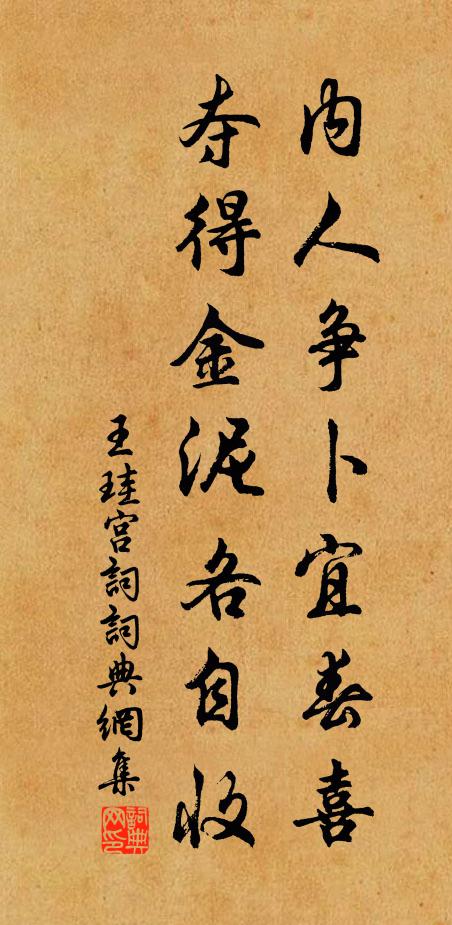 内人争卜宜春喜
夺得金泥各自收
王珪宫詞詞典網集
詞典
网印